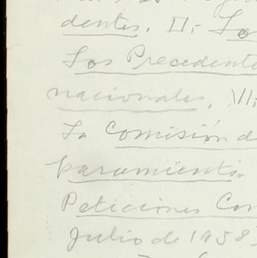 dentes. II.- Los
Los Precedente
nacionales. VII.
La Comisión d
paramienta.
Peticiones Con
Julio de 1958